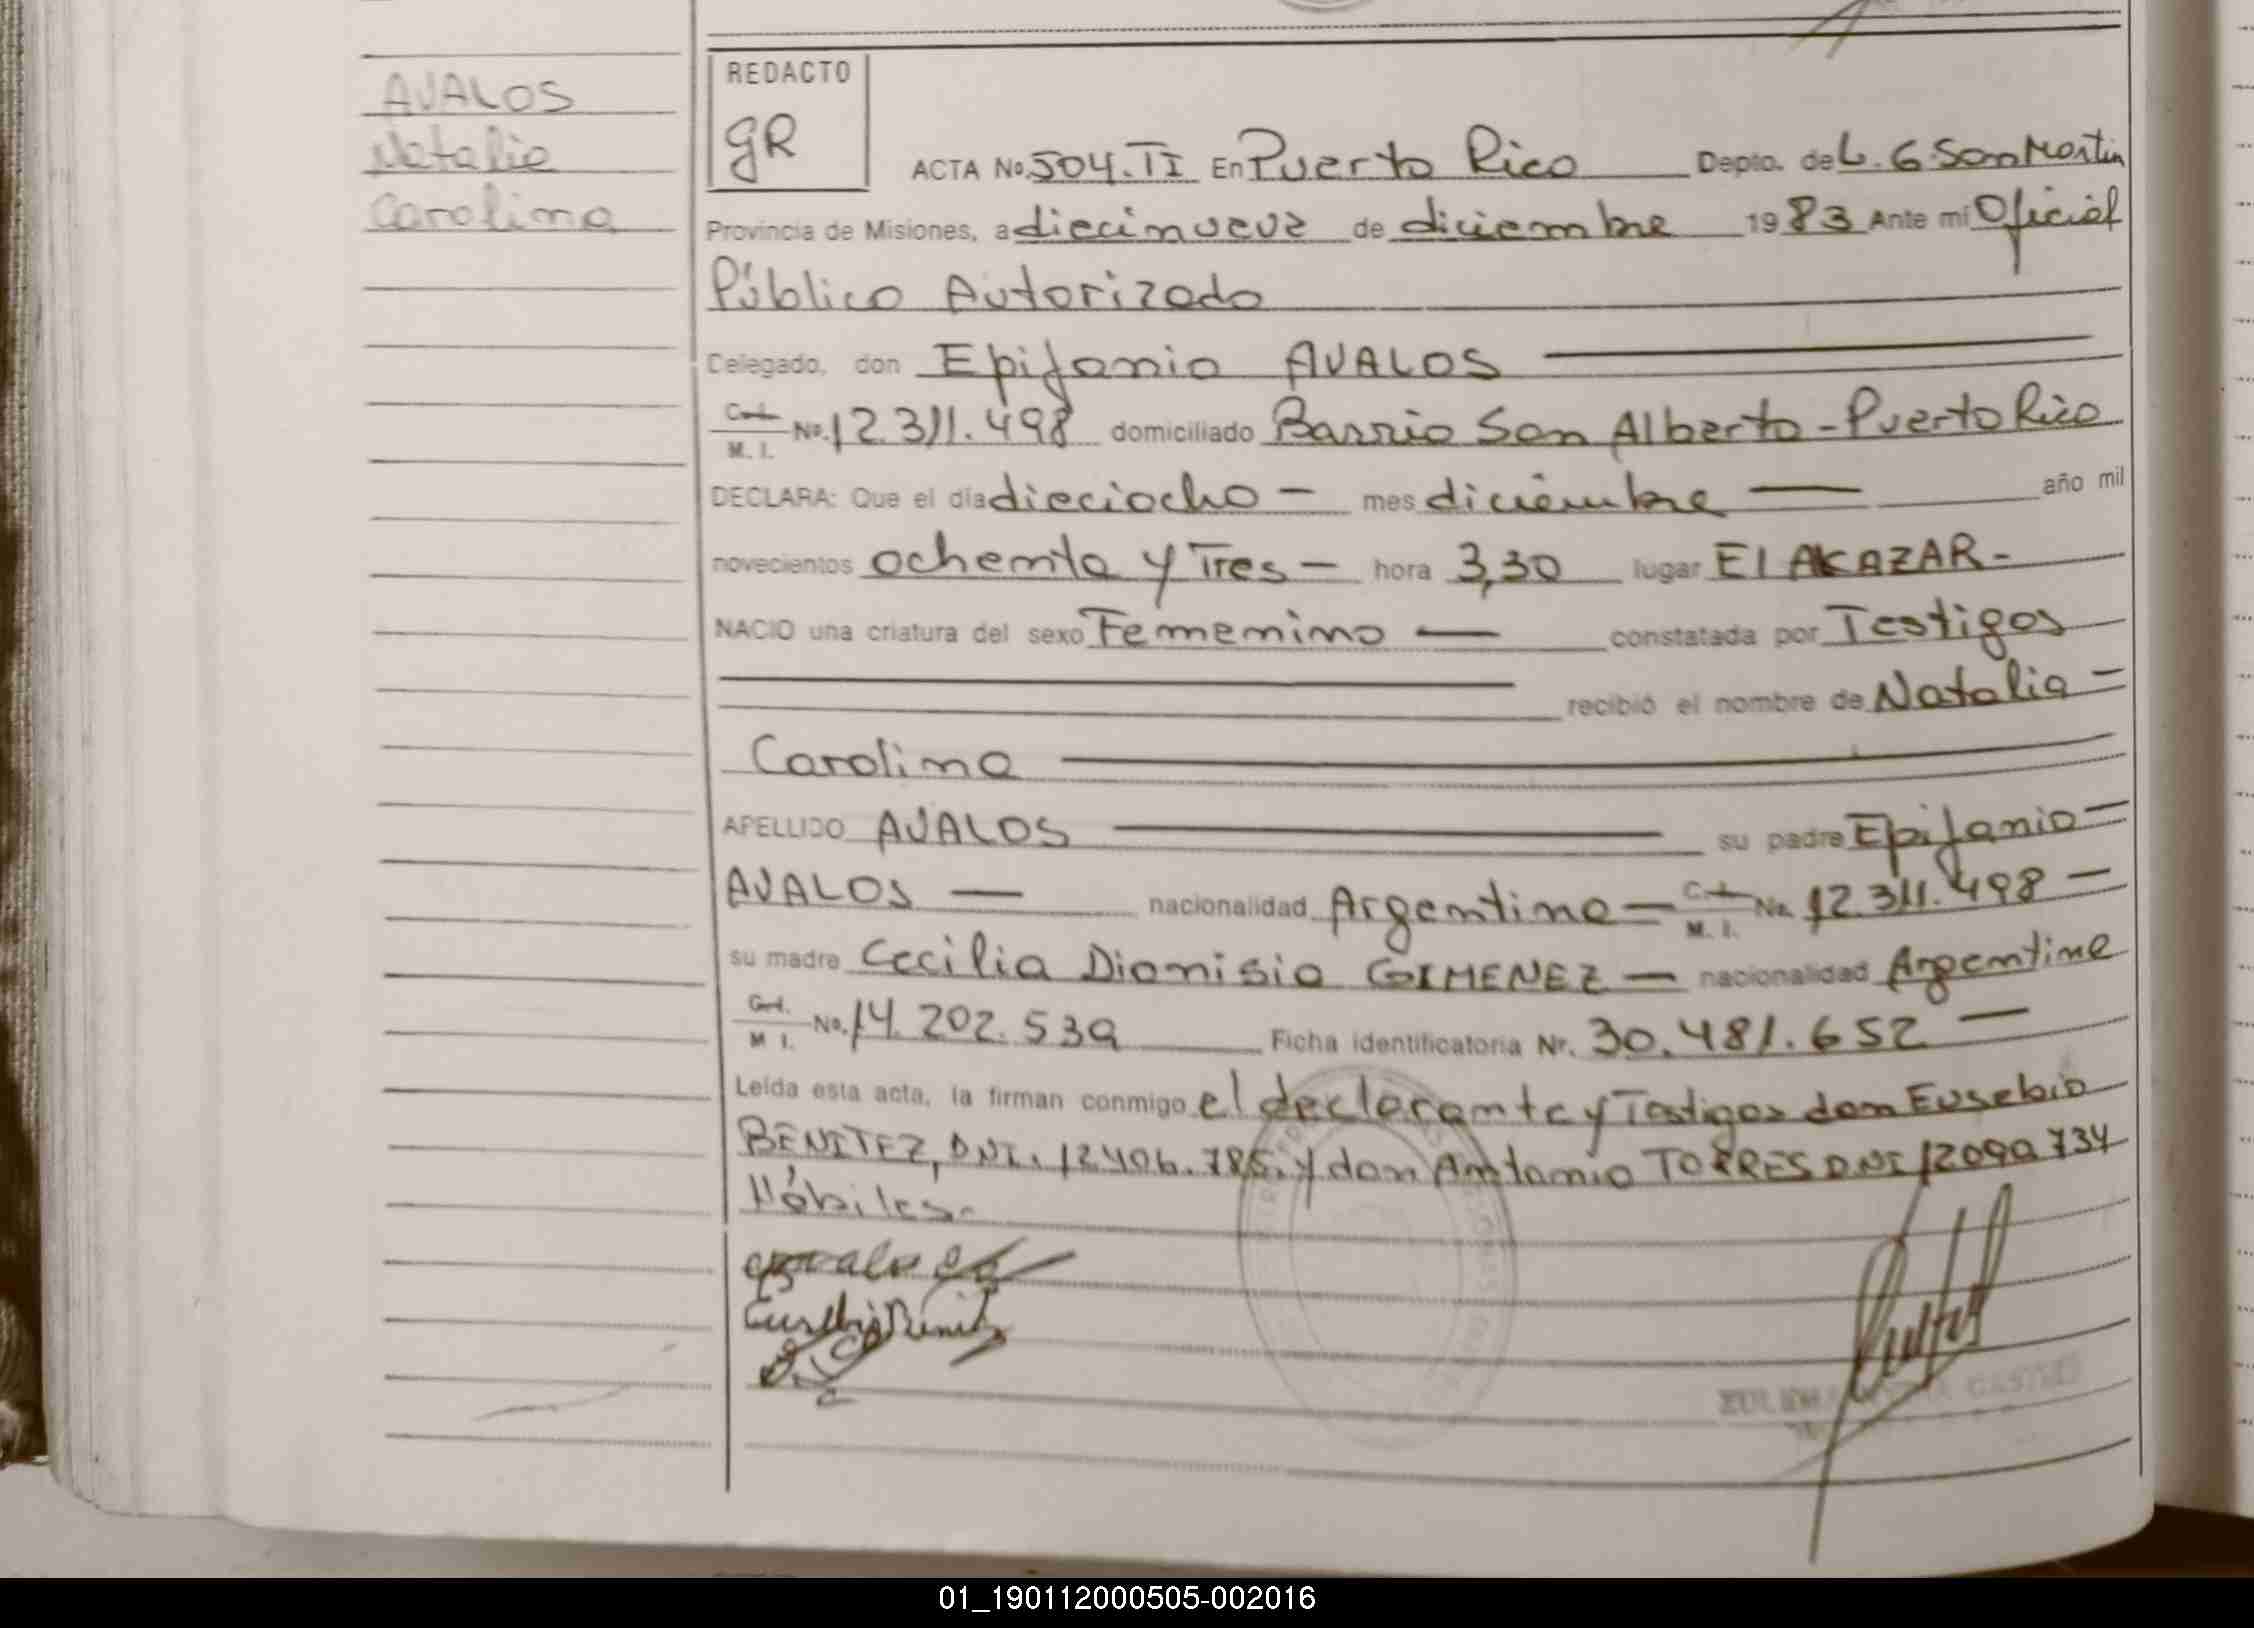 AVALOS
Natalia
Carolina
REDACTO
gR
ACTA No. 504. TI En Puerto Rico Depto. de L. G San Martin
Provincia de Misiones, a diecinueve de diciembre 1983 Ante mí Oficial
Público Autorizado
Delegado, don Epifanio AVALOS
C.I. M. I. No. 12.311.498 domiciliado Barrio San Alberto - Puerto Rico
DECLARA: Que el día dieciocho - mes diciembre — año mil
novecientos ochenta y Tres - hora 3,30 lugar El ALCAZAR -
NACIO una criatura del sexo Femenino — constatada por Testigos
recibió el nombre de Natalia =
Carolina
APELLIDO AVALOS su padre Epifanio =
AVALOS — nacionalidad Argentina = M. I. No. 12.311.498 —
su madre Cecilia Dionisia GIMENEZ — nacionalidad Argentina
M I. No. 14.202.539 Ficha identificatoria Nr. 30.481.652 —
Leída esta acta, la firman conmigo el declarante y Testigos don Eusebio
BENITEZ, DNI. 12406.785. y don Antonio TORRES DNI 12090734
Hábiles.-
Eusebio Benitez
01_190112000505-002016